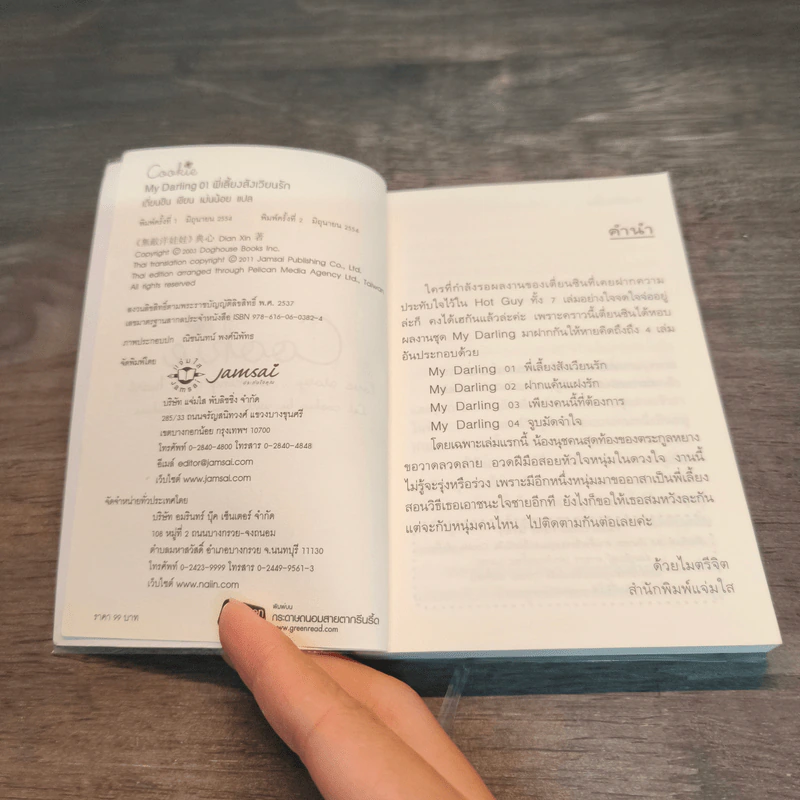 Cookie
My Darling 01 พี่เลี้ยงสังเวียนรัก
เตี่ยนซิน เขียน เม่นน้อย แปล
พิมพ์ครั้งที่ 1 มิถุนายน 2554 พิมพ์ครั้งที่ 2 มิถุนายน 2554
典心 Dian Xin 著
Copyright © 2003 Doghouse Books Inc.
Thai translation copyright © 2011 Jamsai Publishing Co., Ltd.
Thai edition arranged through Pelican Media Agency Ltd., Taiwan
All rights reserved
สงวนลิขสิทธิ์ตามพระราชบัญญัติลิขสิทธิ์ พ.ศ. 2537
เลขมาตรฐานสากลประจำหนังสือ ISBN 978-616-06-0382-4
ภาพประกอบปก ณิชนันทน์ พงศ์นิพัทธ
จัดพิมพ์โดย
แจ่มใส
JAMSAI
Jamsai
บริษัท แจ่มใส พับลิชชิ่ง จำกัด
285/33 ถนนจรัญสนิทวงศ์ แขวงบางขุนศรี
เขตบางกอกน้อย กรุงเทพฯ 10700
โทรศัพท์ 0-2840-4800 โทรสาร 0-2840-4848
อีเมล์ editor@jamsai.com
เว็บไซต์ www.jamsai.com
จัดจำหน่ายทั่วประเทศโดย
บริษัท อมรินทร์ บุ๊ค เซ็นเตอร์ จำกัด
108 หมู่ที่ 2 ถนนบางกรวย-จงถนอม
ตำบลมหาสวัสดิ์ อำเภอบางกรวย จ.นนทบุรี 11130
โทรศัพท์ 0-2423-9999 โทรสาร 0-2449-9561-3
เว็บไซต์ www.naiin.com
ราคา 99 บาท
พิมพ์บน
กระดาษถนอมสายตากรีนรี้ด
www.greenread.com
คำนำ
ใครที่กำลังรอผลงานของเตี่ยนซินที่เคยฝากความ
ประทับใจไว้ใน Hot Guy ทั้ง 7 เล่มอย่างใจจดใจจ่ออยู่
ล่ะก็ คงได้เฮกันแล้วล่ะค่ะ เพราะคราวนี้เตี่ยนซินได้หอบ
ผลงานชุด My Darling มาฝากกันให้หายคิดถึงถึง 4 เล่ม
อันประกอบด้วย
My Darling 01 พี่เลี้ยงสังเวียนรัก
My Darling 02 ฝากแค้นแฝงรัก
My Darling 03 เพียงคนนี้ที่ต้องการ
My Darling 04 จูบมัดจำใจ
โดยเฉพาะเล่มแรกนี้ น้องนุชคนสุดท้องของตระกูลหยาง
ขอวาดลวดลาย อวดฝีมือสอยหัวใจหนุ่มในดวงใจ งานนี้
ไม่รู้จะรุ่งหรือร่วง เพราะมีอีกหนึ่งหนุ่มมาขออาสาเป็นพี่เลี้ยง
สอนวิธีเธอเอาชนะใจชายอีกที ยังไงก็ขอให้เธอสมหวังละกัน
แต่จะกับหนุ่มคนไหน ไปติดตามกันต่อเลยค่ะ
ด้วยไมตรีจิต
สำนักพิมพ์แจ่มใส